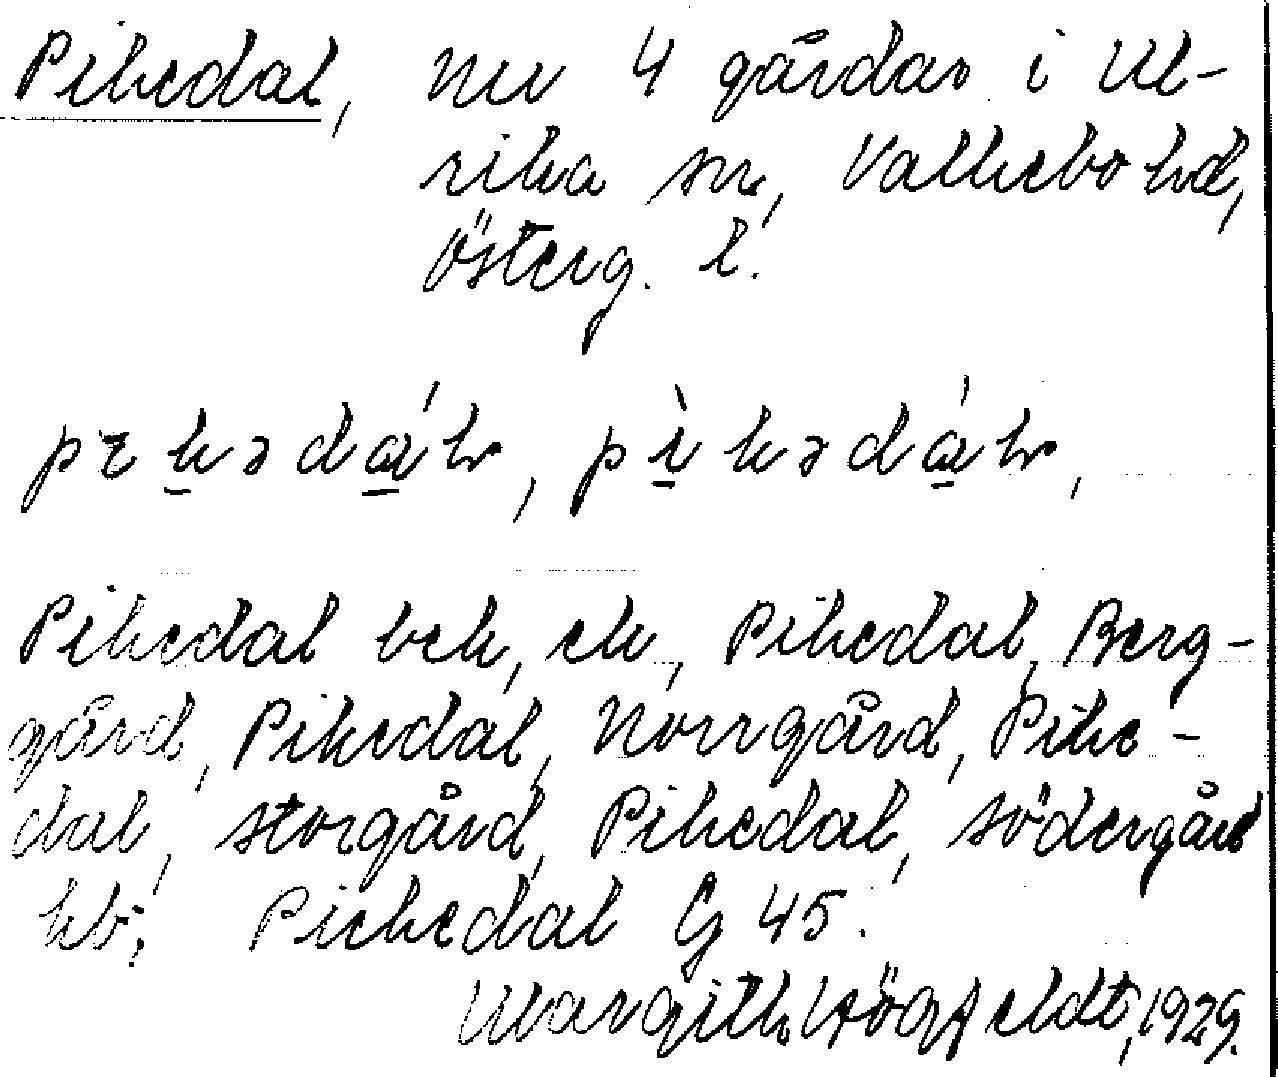 Pikedal, nu 4 gårdar i Ul-
rika sn, Valkebo hd,
Österg. l.
pɪkədáʟ, pìkədáʟ,
Pikedal bek, ek, Pikedal, Berg-
gård, Pikedal, Norrgård, Pike-
dal, Storgård, Pikedal, Södergård
kb; Pickedal G 45.
Margith Högfeldt, 1929.